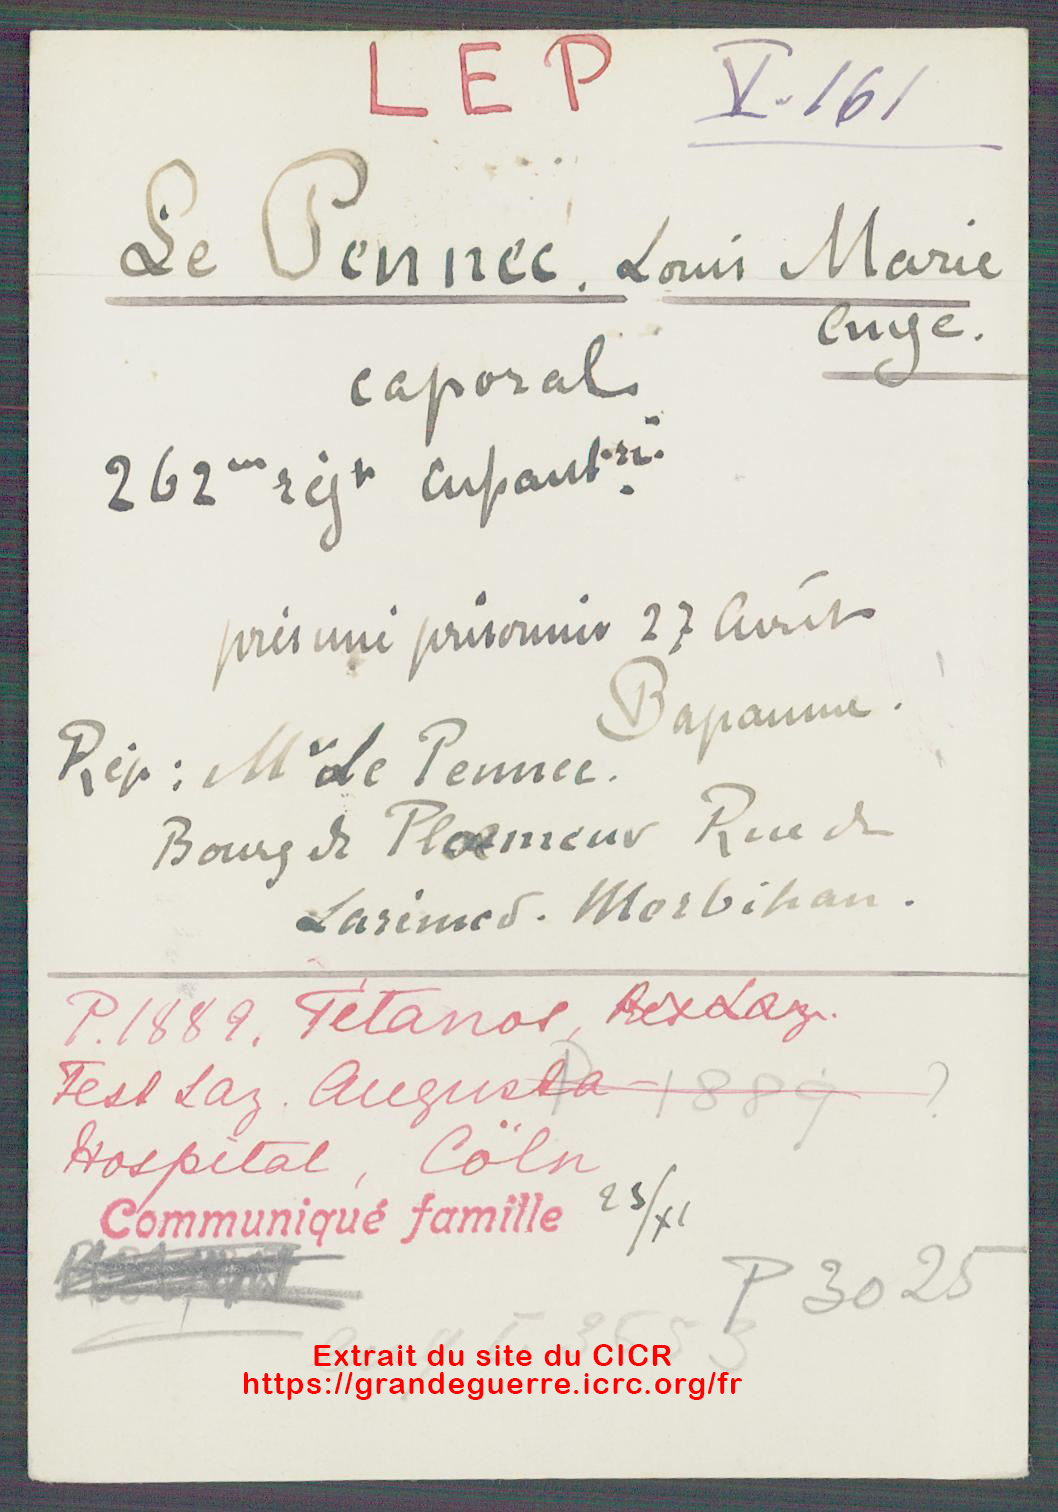 LEP V. 161
Le Pennec. Louis Marie
Ange.
caporal
262me régt Infantrie.
présumé prisonnier 27 Août
Bapaume.
Rép: Mr Le Pennec.
Bourg de Ploemeur Rue de
Larimed. Morbihan.
P. 1889. Tétanos, Res Laz.
Fest Laz. Augusta
P 1889 ?
Hospital, Cöln
Communiqué famille 23/XI
P 3025
Extrait du site du CICR
https://grandeguerre.icrc.org/fr